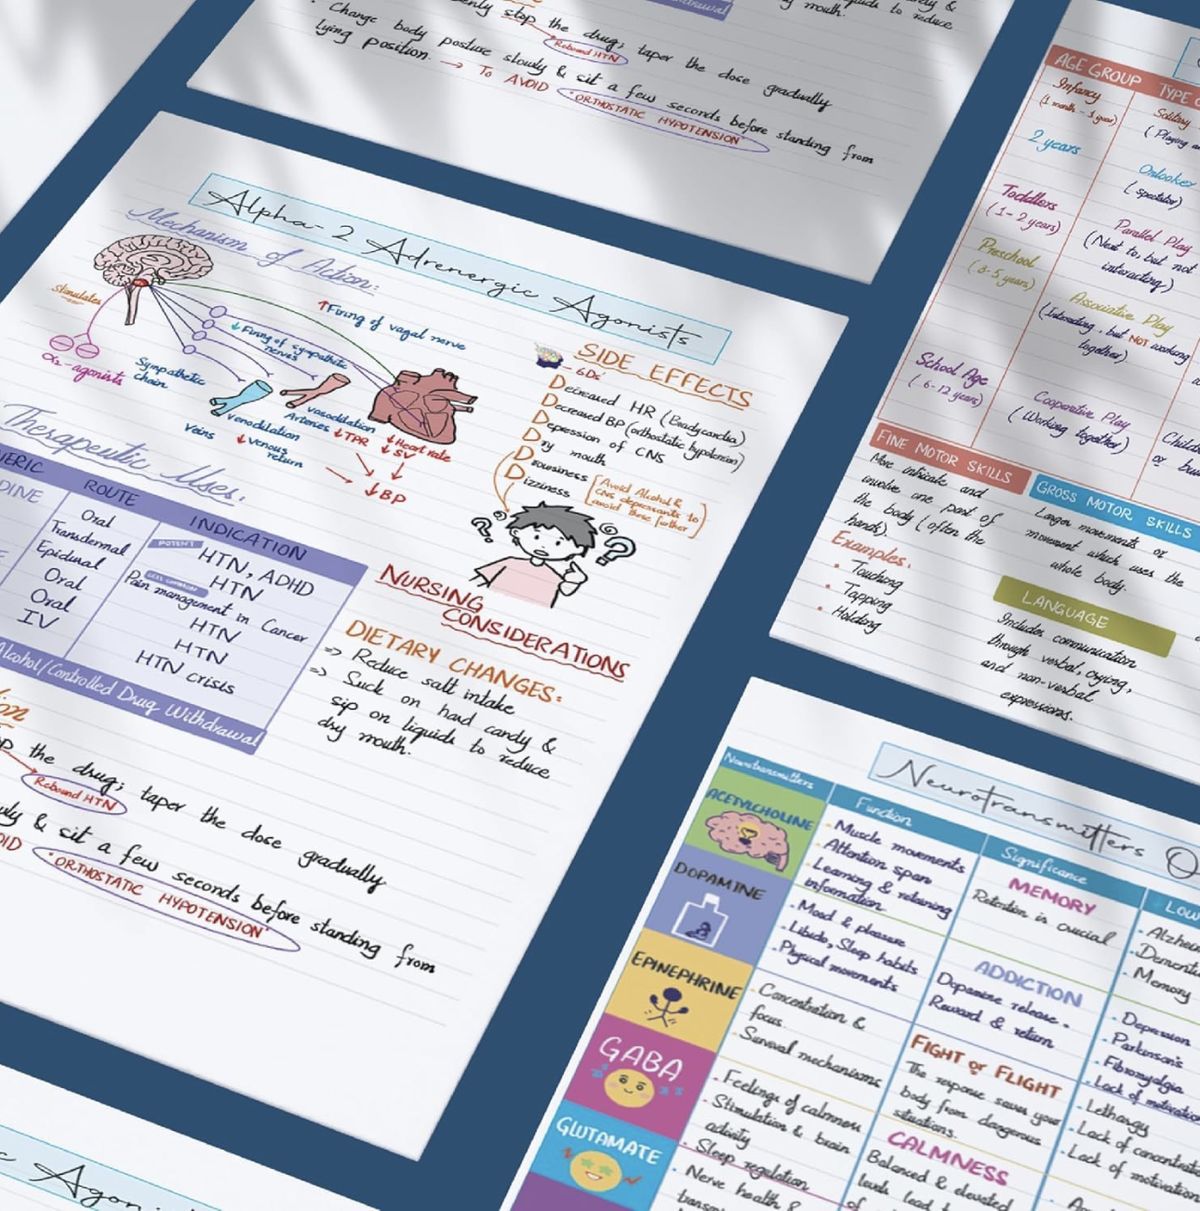 ently stop the drug; taper the dose gradually
Rebound HTN
Change body posture slowly & sit a few seconds before standing from
lying position. → To AVOID "ORTHOSTATIC HYPOTENSION"
mouth.
liquids to reduce
Alpha-2 Adrenergic Agonists
Mechanism of Action:
Stimulates
α2-agonists
Sympathetic
chain
↑Firing of vagal nerve
↓Firing of sympathetic
nerves
Veins
Venodilation
↓venous
return
vasodilation
Arteries ↓TPR
↓Heart rate
↓SV
↓BP
SIDE EFFECTS
- 6Ds'
Decreased HR (Bradycardia)
Decreased BP (orthostatic hypotension)
Depression of CNS
Dry mouth
Drowsiness
Dizziness
Avoid Alcohol &
CNS depressants to
avoid these further
Therapeutic Uses:
ERIC
ROUTE
INDICATION
DINE
Oral
Transdermal
Epidural
Oral
Oral
IV
POTENT
HTN, ADHD
LESS COMMON
HTN
Pain management in Cancer
HTN
HTN
HTN crisis
Alcohol/Controlled Drug Withdrawal
NURSING
CONSIDERATIONS
DIETARY CHANGES:
=> Reduce salt intake
=> Suck on hard candy &
sip on liquids to reduce
dry mouth.
op the drug; taper the dose gradually
Rebound HTN
wly & sit a few seconds before standing from
OID "ORTHOSTATIC HYPOTENSION"
c Agoni
AGE GROUP
TYPE
Infancy
(1 month - 1 year)
Solitary
(Playing a
2 years
Onlooker
(spectator)
Toddlers
(1-2 years)
Parallel Play
(Next to, but not
interacting)
Preschool
(3-5 years)
Associative Play
(Interacting, but NOT working
together)
School Age
(6-12 years)
Cooperative Play
(Working together)
Child
or bu
FINE MOTOR SKILLS
More intricate and
involve one part of
the body (often the
hands).
Examples:
• Touching
• Tapping
• Holding
GROSS MOTOR SKILLS
Larger movements or
movement which uses the
whole body.
LANGUAGE
Includes communication
through verbal, crying,
and non-verbal
expressions.
Neurotransmitters O
Neurotransmitters
Function
Significance
Low
ACETYLCHOLINE
- Muscle movements
- Attention span
- Learning & retaining
information
MEMORY
Retention is crucial
- Alzhe
- Dementi
- Memory
DOPAMINE
- Mood & pleasure
- Libido, Sleep habits
- Physical movements
ADDICTION
Dopamine release.
Reward & return
- Depression
- Parkinson's
- Fibromyalgia
- Lack of motivatio
EPINEPHRINE
- Concentration &
focus
- Survival mechanisms
FIGHT or FLIGHT
The response saves your
body from dangerous
situations.
- Lethargy
- Lack of concentrat
- Lack of motivation
GABA
- Feelings of calmness
- Stimulation & brain
activity
- Sleep regulation
CALMNESS
Balanced & elevated
levels lead t
of
GLUTAMATE
- Nerve health &